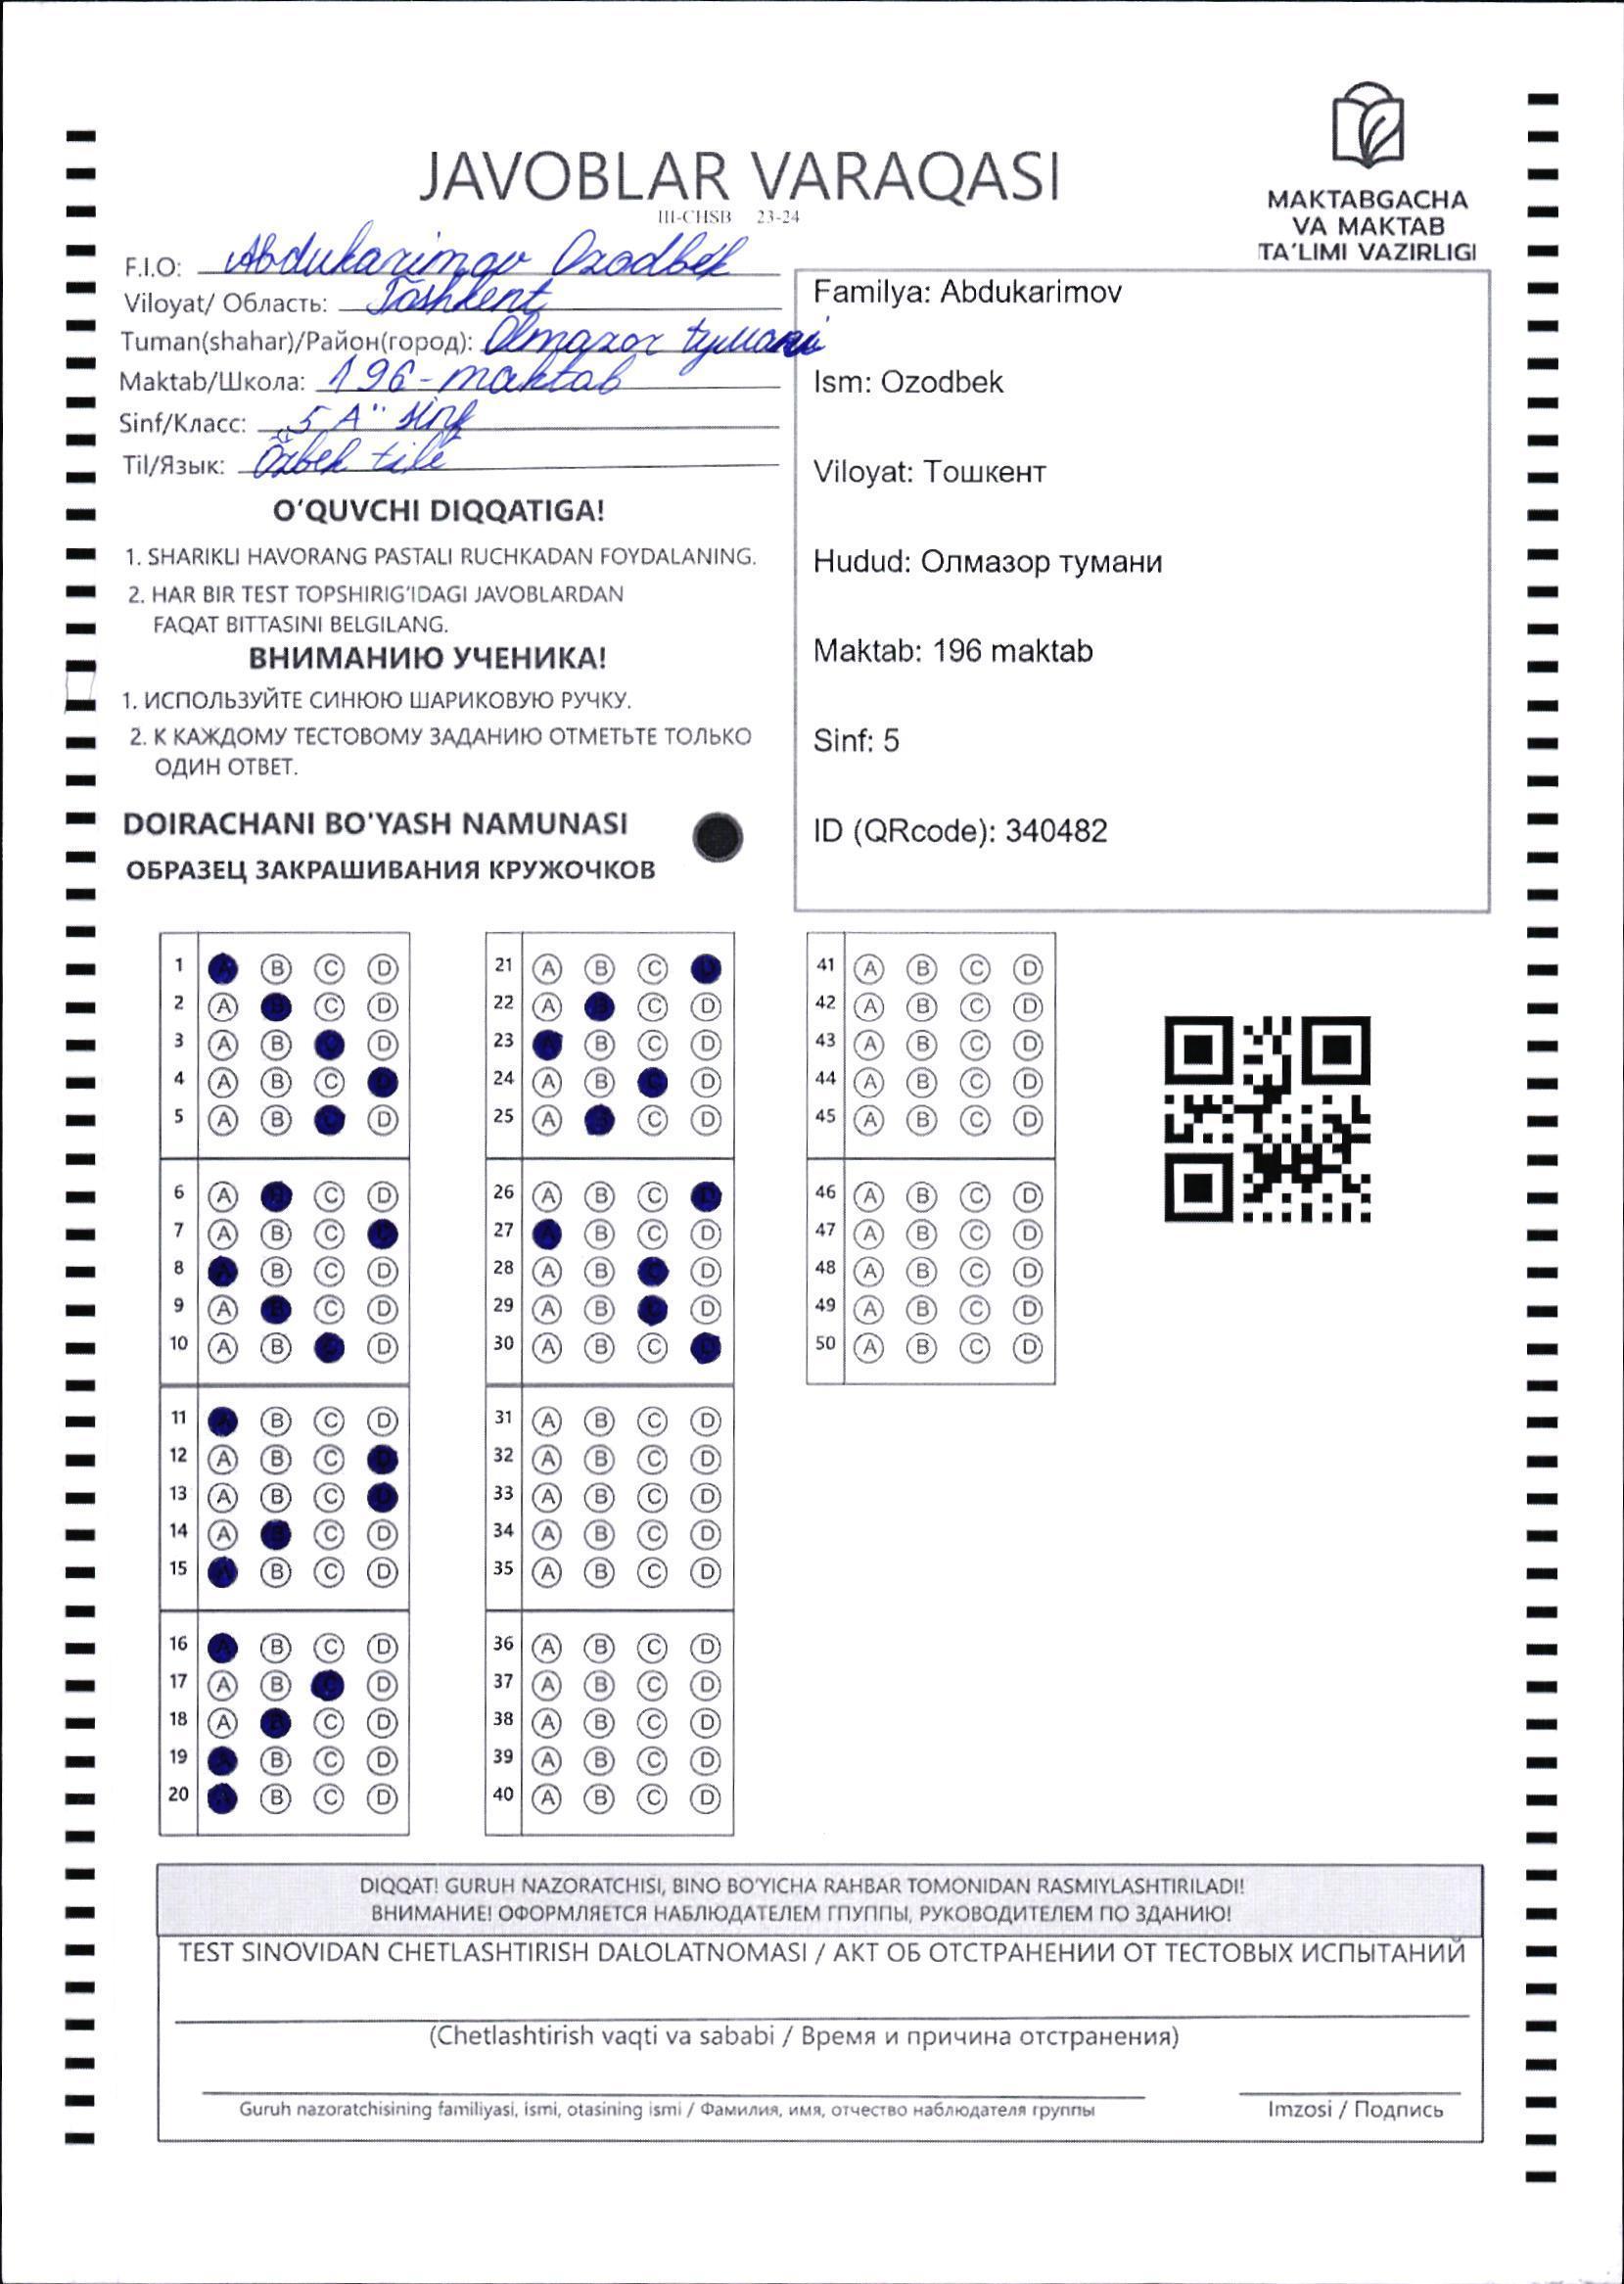 JAVOBLAR VARAQASI
III-CHSB 23-24
MAKTABGACHA
VA MAKTAB
TA'LIMI VAZIRLIGI
F.I.O: Abdukarimov Ozodbek
Viloyat/ Область: Tashkent
Tuman(shahar)/Район(город): Olmazor tumani
Maktab/Школа: 196-maktab
Sinf/Класс: „5 A" sinf
Til/Язык: Özbek tili
O'QUVCHI DIQQATIGA!
1. SHARIKLI HAVORANG PASTALI RUCHKADAN FOYDALANING.
2. HAR BIR TEST TOPSHIRIG'IDAGI JAVOBLARDAN
FAQAT BITTASINI BELGILANG.
ВНИМАНИЮ УЧЕНИКА!
1. ИСПОЛЬЗУЙТЕ СИНЮЮ ШАРИКОВУЮ РУЧКУ.
2. К КАЖДОМУ ТЕСТОВОМУ ЗАДАНИЮ ОТМЕТЬТЕ ТОЛЬКО
ОДИН ОТВЕТ.
DOIRACHANI BO'YASH NAMUNASI
ОБРАЗЕЦ ЗАКРАШИВАНИЯ КРУЖОЧКОВ
Familya: Abdukarimov
Ism: Ozodbek
Viloyat: Тошкент
Hudud: Олмазор тумани
Maktab: 196 maktab
Sinf: 5
ID (QRcode): 340482
1 A B C D
2 A B C D
3 A B C D
4 A B C D
5 A B C D
6 A B C D
7 A B C D
8 A B C D
9 A B C D
10 A B C D
11 A B C D
12 A B C D
13 A B C D
14 A B C D
15 A B C D
16 A B C D
17 A B C D
18 A B C D
19 A B C D
20 A B C D
21 A B C D
22 A B C D
23 A B C D
24 A B C D
25 A B C D
26 A B C D
27 A B C D
28 A B C D
29 A B C D
30 A B C D
31 A B C D
32 A B C D
33 A B C D
34 A B C D
35 A B C D
36 A B C D
37 A B C D
38 A B C D
39 A B C D
40 A B C D
41 A B C D
42 A B C D
43 A B C D
44 A B C D
45 A B C D
46 A B C D
47 A B C D
48 A B C D
49 A B C D
50 A B C D
DIQQAT! GURUH NAZORATCHISI, BINO BO'YICHA RAHBAR TOMONIDAN RASMIYLASHTIRILADI!
ВНИМАНИЕ! ОФОРМЛЯЕТСЯ НАБЛЮДАТЕЛЕМ ГПУППЫ, РУКОВОДИТЕЛЕМ ПО ЗДАНИЮ!
TEST SINOVIDAN CHETLASHTIRISH DALOLATNOMASI / АКТ ОБ ОТСТРАНЕНИИ ОТ ТЕСТОВЫХ ИСПЫТАНИЙ
(Chetlashtirish vaqti va sababi / Время и причина отстранения)
Guruh nazoratchisining familiyasi, ismi, otasining ismi / Фамилия, имя, отчество наблюдателя группы
Imzosi / Подпись